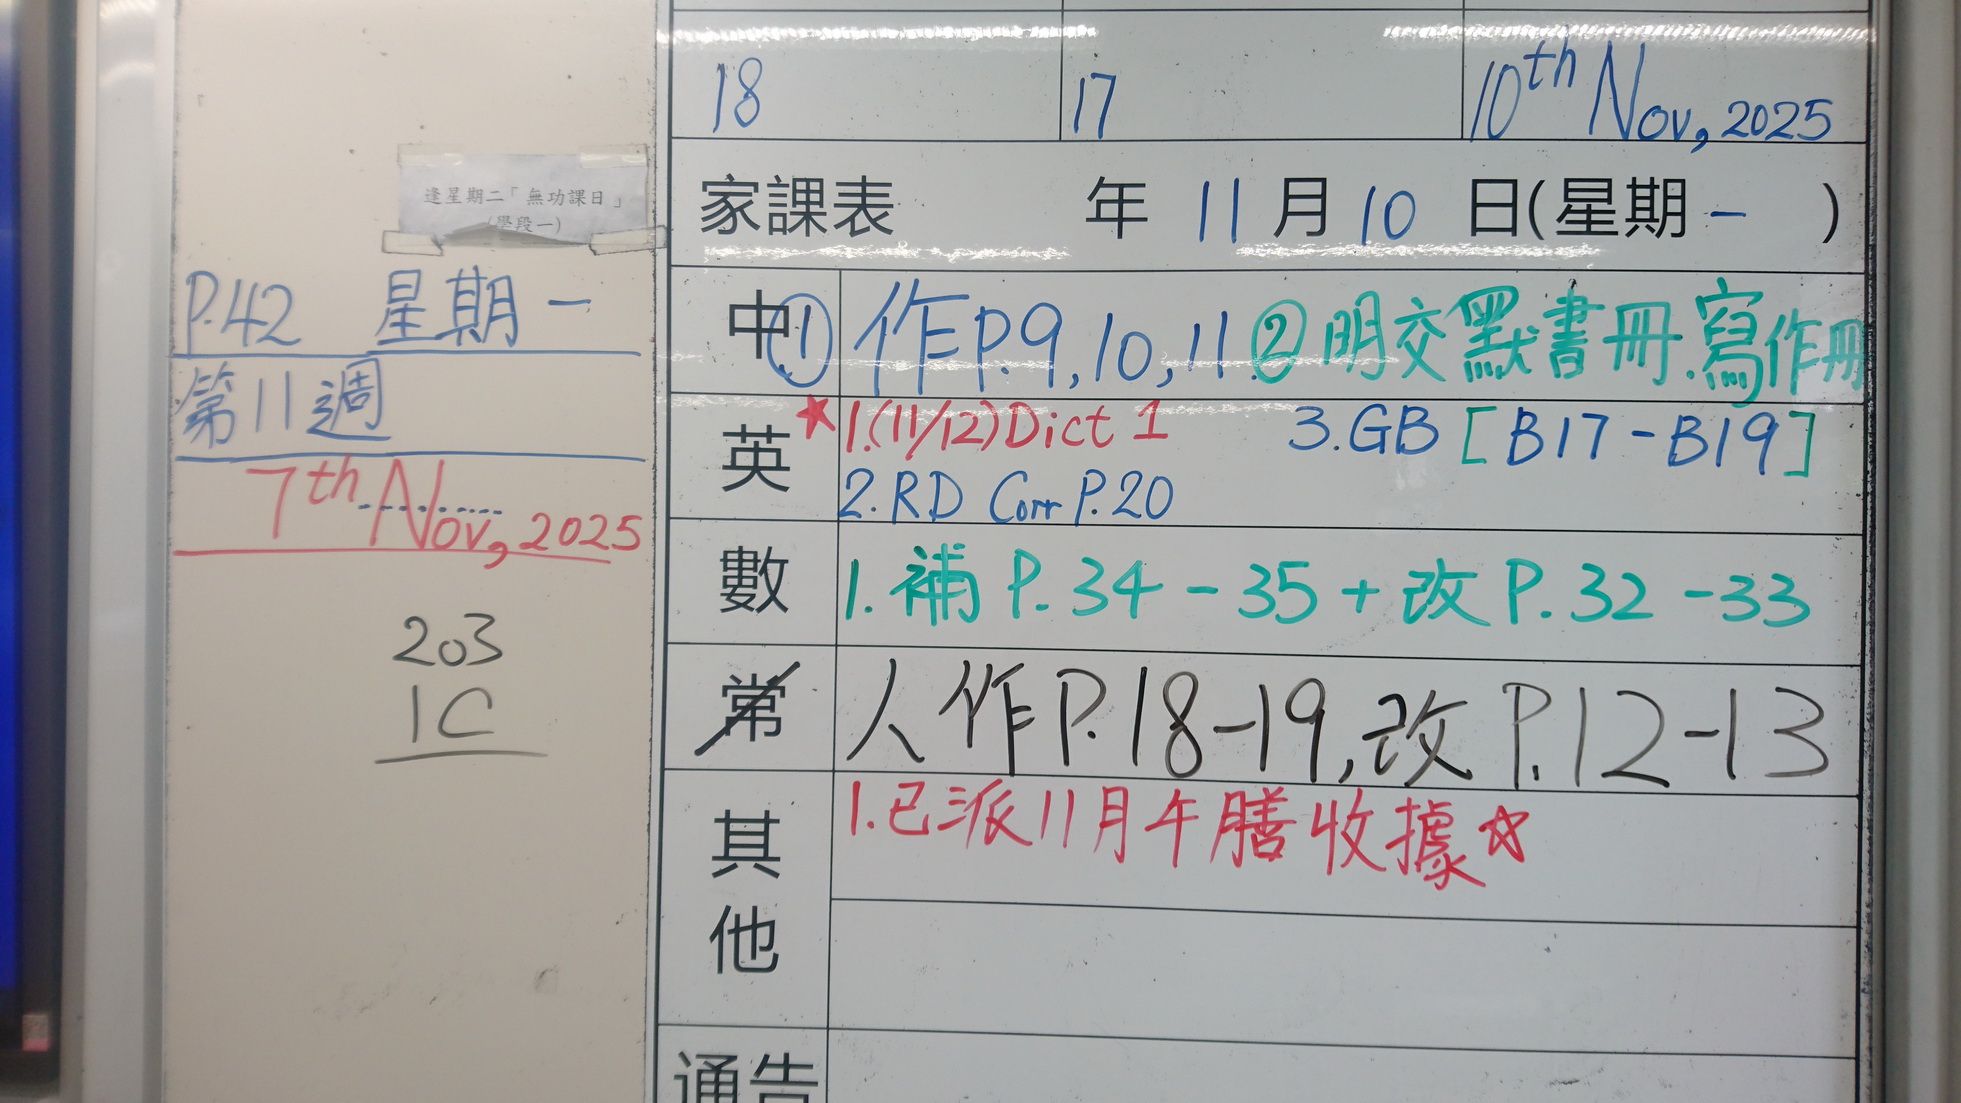 18 17 10th Nov, 2025
逢星期二「無功課日」
(學段一)
家課表 年 11 月 10 日(星期 一 )
P.42 星期一
第11週
7th Nov, 2025
203
1C
中 ① 作P.9,10,11. ② 明交默書冊.寫作冊
英 ★ 1.(11/12)Dict 1 3.GB [B17-B19]
2.RD Corr P.20
數 1.補 P.34-35+改 P.32-33
常 人作P.18-19,改 P.12-13
其他 1.已派11月午膳收據☆
通告